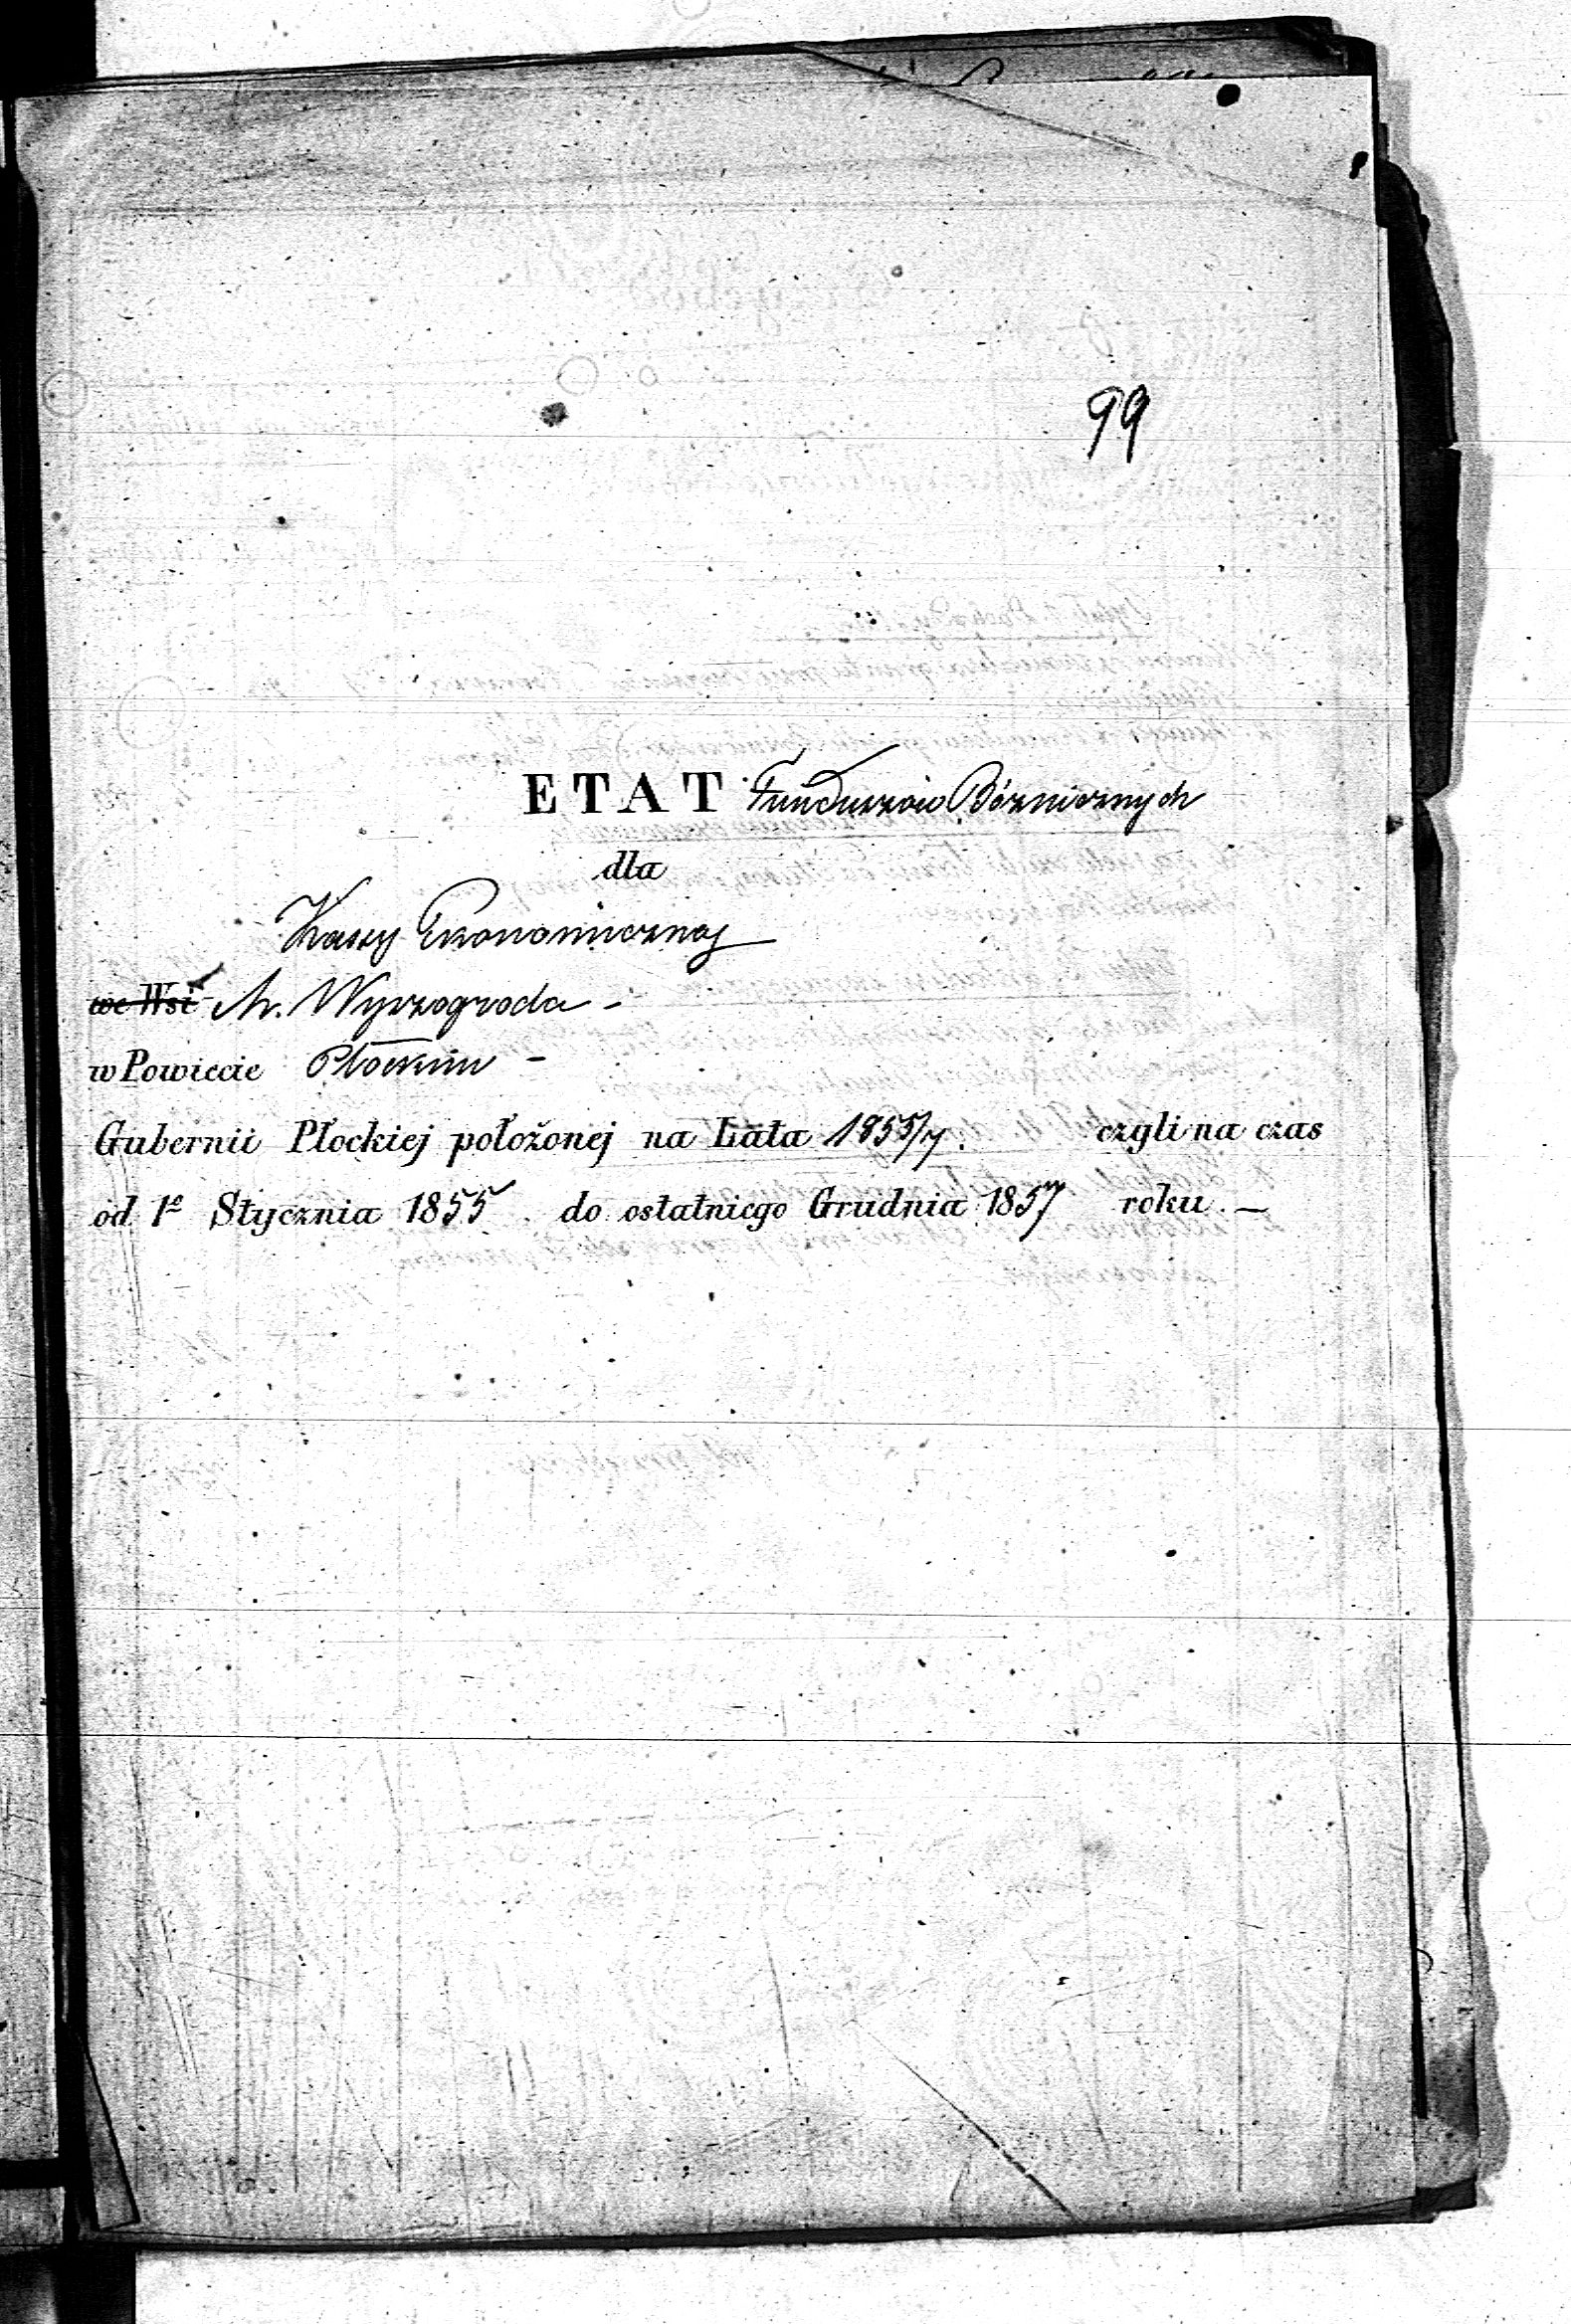 99
ETAT Funduszów Bóżnicznych
dla
Kassy Ekonomicznej
we Wsi M. Wyszogroda -
w Powiecie Płockim -
Gubernii Płockiej położonej na Lata 1855/7. czyli na czas
od 1º Stycznia 1855 do ostatniego Grudnia 1857 roku. —